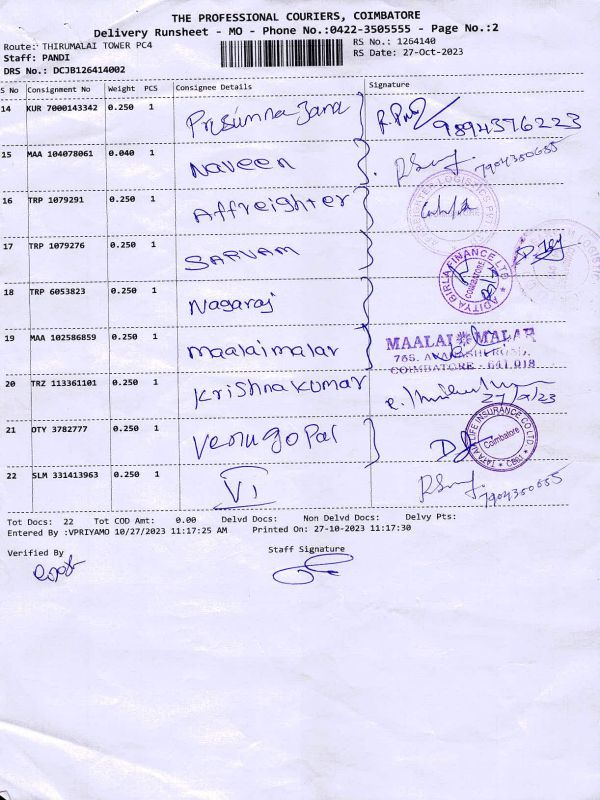 THE PROFESSIONAL COURIERS, COIMBATORE
Delivery Runsheet - MO - Phone No.:0422-3505555 - Page No.:2
Route: THIRUMALAI TOWER PC4 RS No.: 1264140
Staff: PANDI RS Date: 27-Oct-2023
DRS No.: DCJB126414002
S No Consignment No Weight PCS Consignee Details Signature
14 KUR 7000143342 0.250 1 9894376223
15 MAA 104078061 0.040 1 Naveen 7904380685
16 TRP 1079291 0.250 1 Affreighter
17 TRP 1079276 0.250 1 SARVAM
ADITYA BIRLA FINANCE LTD COIMBATORE
18 TRP 6053823 0.250 1 Nagaraj
19 MAA 102586859 0.250 1 maalaimalar MAALAI MALAR
COIMBATORE - 641 018
20 TRZ 113361101 0.250 1 Krishnakumar
21 OTY 3782777 0.250 1 Venugopal TATA AIA LIFE INSURANCE CO LTD. Coimbatore
22 SLM 331413963 0.250 1 VI
Tot Docs: 22 Tot COD Amt: 0.00 Delvd Docs: Non Delvd Docs: Delvy Pts:
Entered By :VPRIYAMO 10/27/2023 11:17:25 AM Printed On: 27-10-2023 11:17:30
Verified By Staff Signature